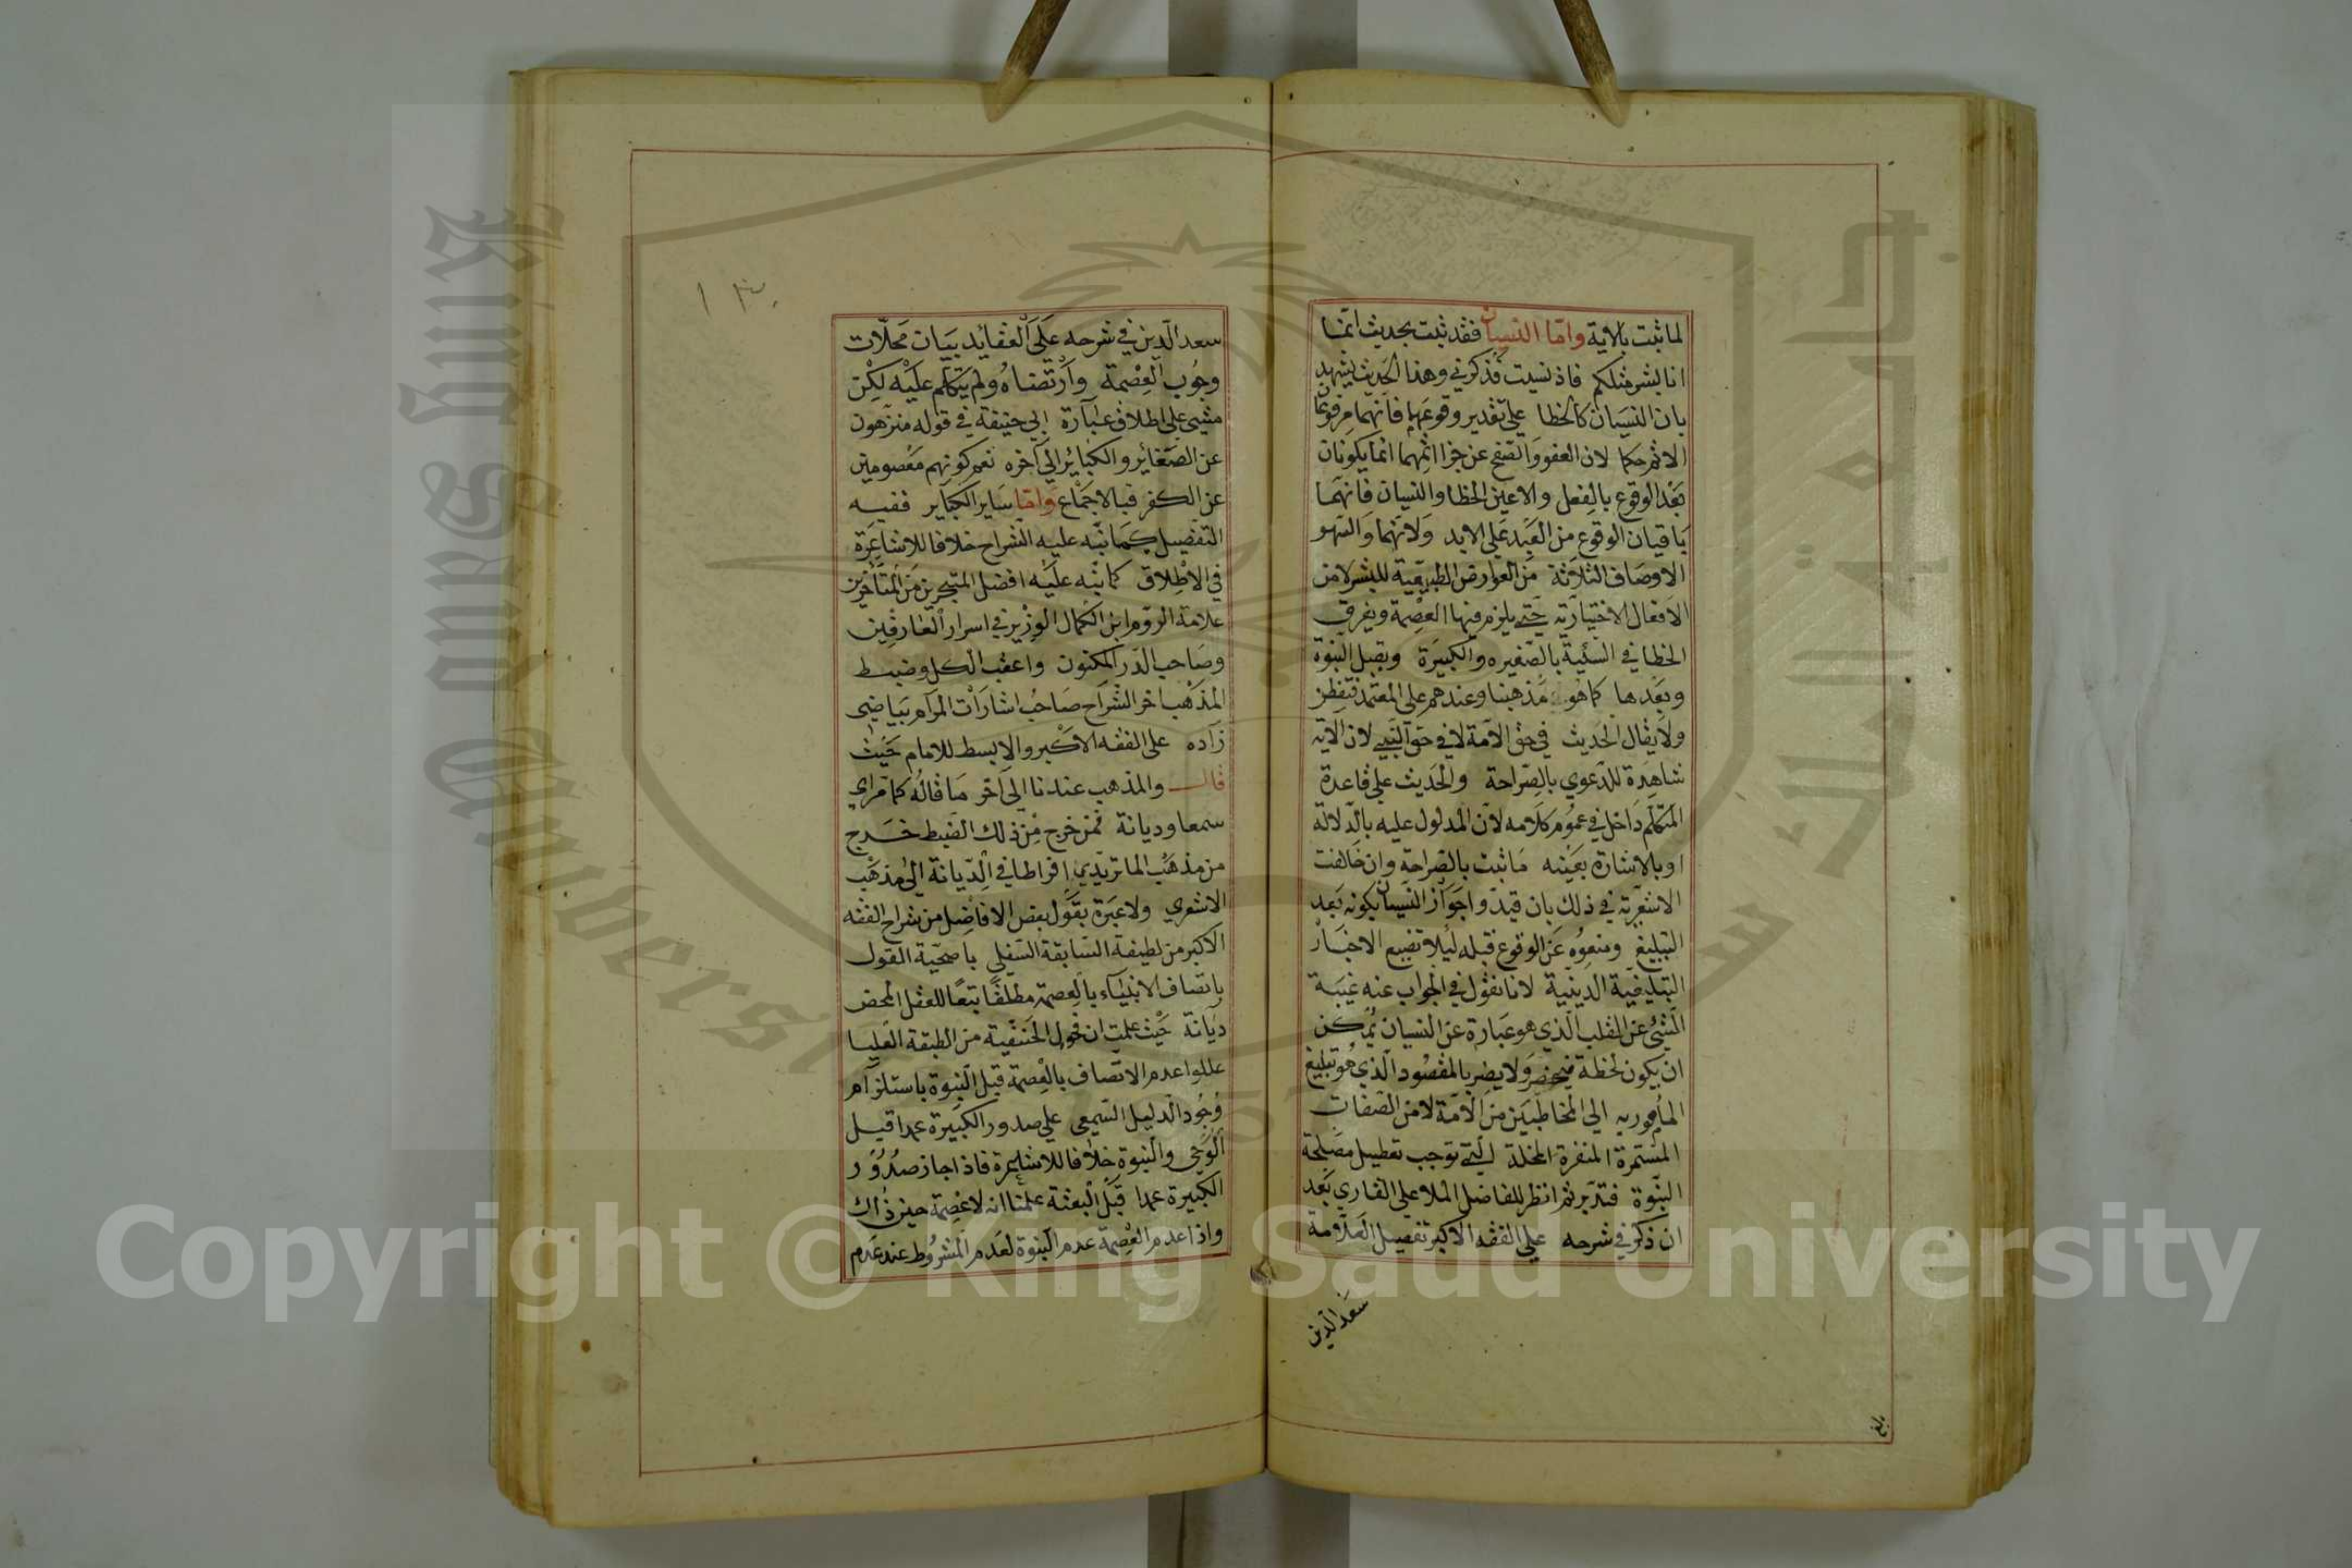 لما ثبت بالاية واما النسيان فقد ثبت بحديث انما
انا بشر مثلكم فاذ نسيت فذكروني وهذا الحديث يشهد
بان النسيان كالخطا على تقدير وقوعهما فانهما مرفوعا
الاثم حكما لان العفو والصفح عن جزا اثمهما انما يكونان
بعد الوقوع بالفعل والا عين الخطا والنسيان فانهما
باقيان الوقوع من العبد على الابد ولانهما والسهو
الاوصاف الثلاثة من العوارض الطبيعية للبشر لا من
الافعال الاختيارية حتى يلزم فيها العصمة ويفرق
الخطا في السئية بالصغيره والكبيرة وبقبل النبوة
وبعدها كما هو مذهبنا وعندهم على المعتمد فتفطن
ولا يقال الحديث في حق الامة لا في حق النبي لان الاية
شاهدة للدعوي بالصراحة والحديث على قاعدة
المتكلم داخل في عموم كلامه لان المدلول عليه بالدلالة
او بالاشارة بعينه ما ثبت بالصراحة وان خالفت
الاشعرية في ذلك بان قيدوا جواز النسيان بكونه بعد
التبليغ ومنعوه عن الوقوع قبله ليلا تضيع الاخبار
التبليغية الدينية لانا نقول في الجواب عنه غيبة
الشئ عن القلب الذي هو عبارة عن النسيان يمكن
ان يكون لحظة فيحضر ولا يضر بالمقصود الذي هو تبليغ
المأمور به الي المخاطبين من الامة لا من الصفات
المستمرة المنفرة المخلة التي توجب تعطيل مصلحة
النبوة فتدبر ثم انظر للفاضل الملا علي القاري بعد
ان ذكر في شرحه علي الفقه الاكبر تفصيل العلامة
سعد الدين
بلغ
١٣
سعد الدين في شرحه على العقايد بيان محلات
وجوب العصمة وارتضاه ولم يتكلم عليه لكن
مشي على اطلاق عبارة ابي حنيفة في قوله منزهون
عن الصغائر والكبائر الى آخره نعم كونهم معصومين
عن الكفر فبالاجماع واما ساير الكباير ففيه
التفصيل كما نبه عليه الشراح خلافا للاشاعرة
في الاطلاق كما نبه عليه افضل المتبحرين من المتأخرين
علامة الروم ابن الكمال الوزير في اسرار العارفين
وصاحب الدر المكنون واعقب الكل وضبط
المذهب اخر الشراح صاحب اشارات المرام بياضي
زاده على الفقه الاكبر والابسط للامام حيث
قال والمذهب عندنا الى آخر ما قاله كما تراي
سمعا وديانة فمن خرج من ذلك الضبط خرج
من مذهب الماتريدي افراطا في الديانة الى مذهب
الاشعري ولا عبرة بقول بعض الافاضل من شراح الفقه
الاكبر من لطيفة السابقة السفلى باصحية القول
باتصاف الانبياء بالعصمة مطلقا تبعا للعقل المحض
ديانة حيث علمت ان فحول الحنفية من الطبقة العليا
عللوا عدم الاتصاف بالعصمة قبل النبوة باستلزام
وجود الدليل السمعي علي صدور الكبيرة عمدا قبل
الوحي والنبوة خلافا للاشاعرة فاذا جاز صدور
الكبيرة عمدا قبل البعثة علمنا انه لا عصمة حين ذاك
واذا عدم العصمة عدم النبوة لعدم المشروط عند عدم
King Saud University
Copyright © King Saud University